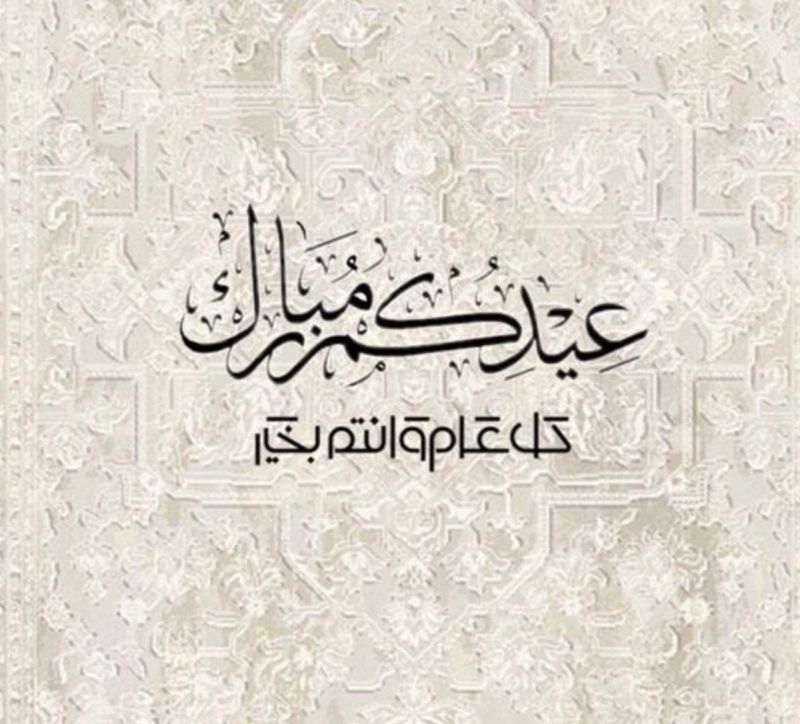 عِيْدِكُم مُبَارك
كل عام وانتم بخير